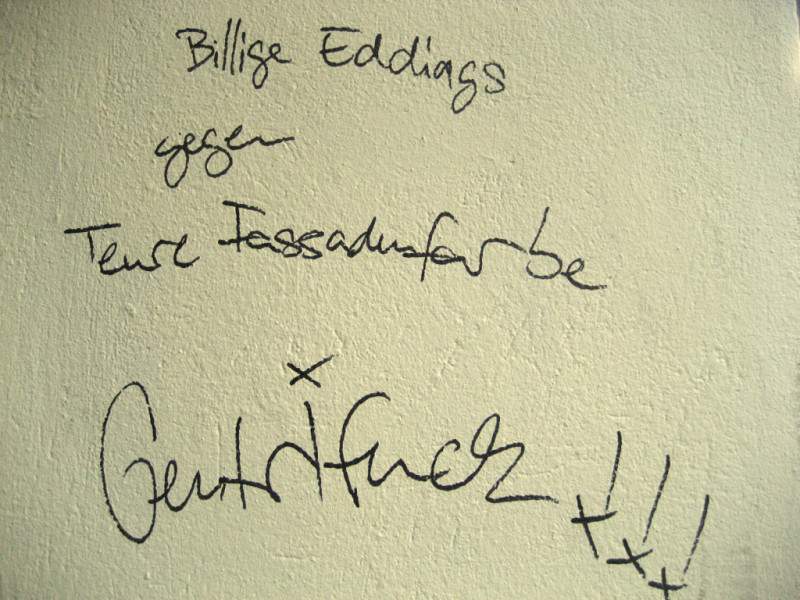 Billige Eddings
gegen
Teure Fassadenfarbe
Gentrifuck !!!